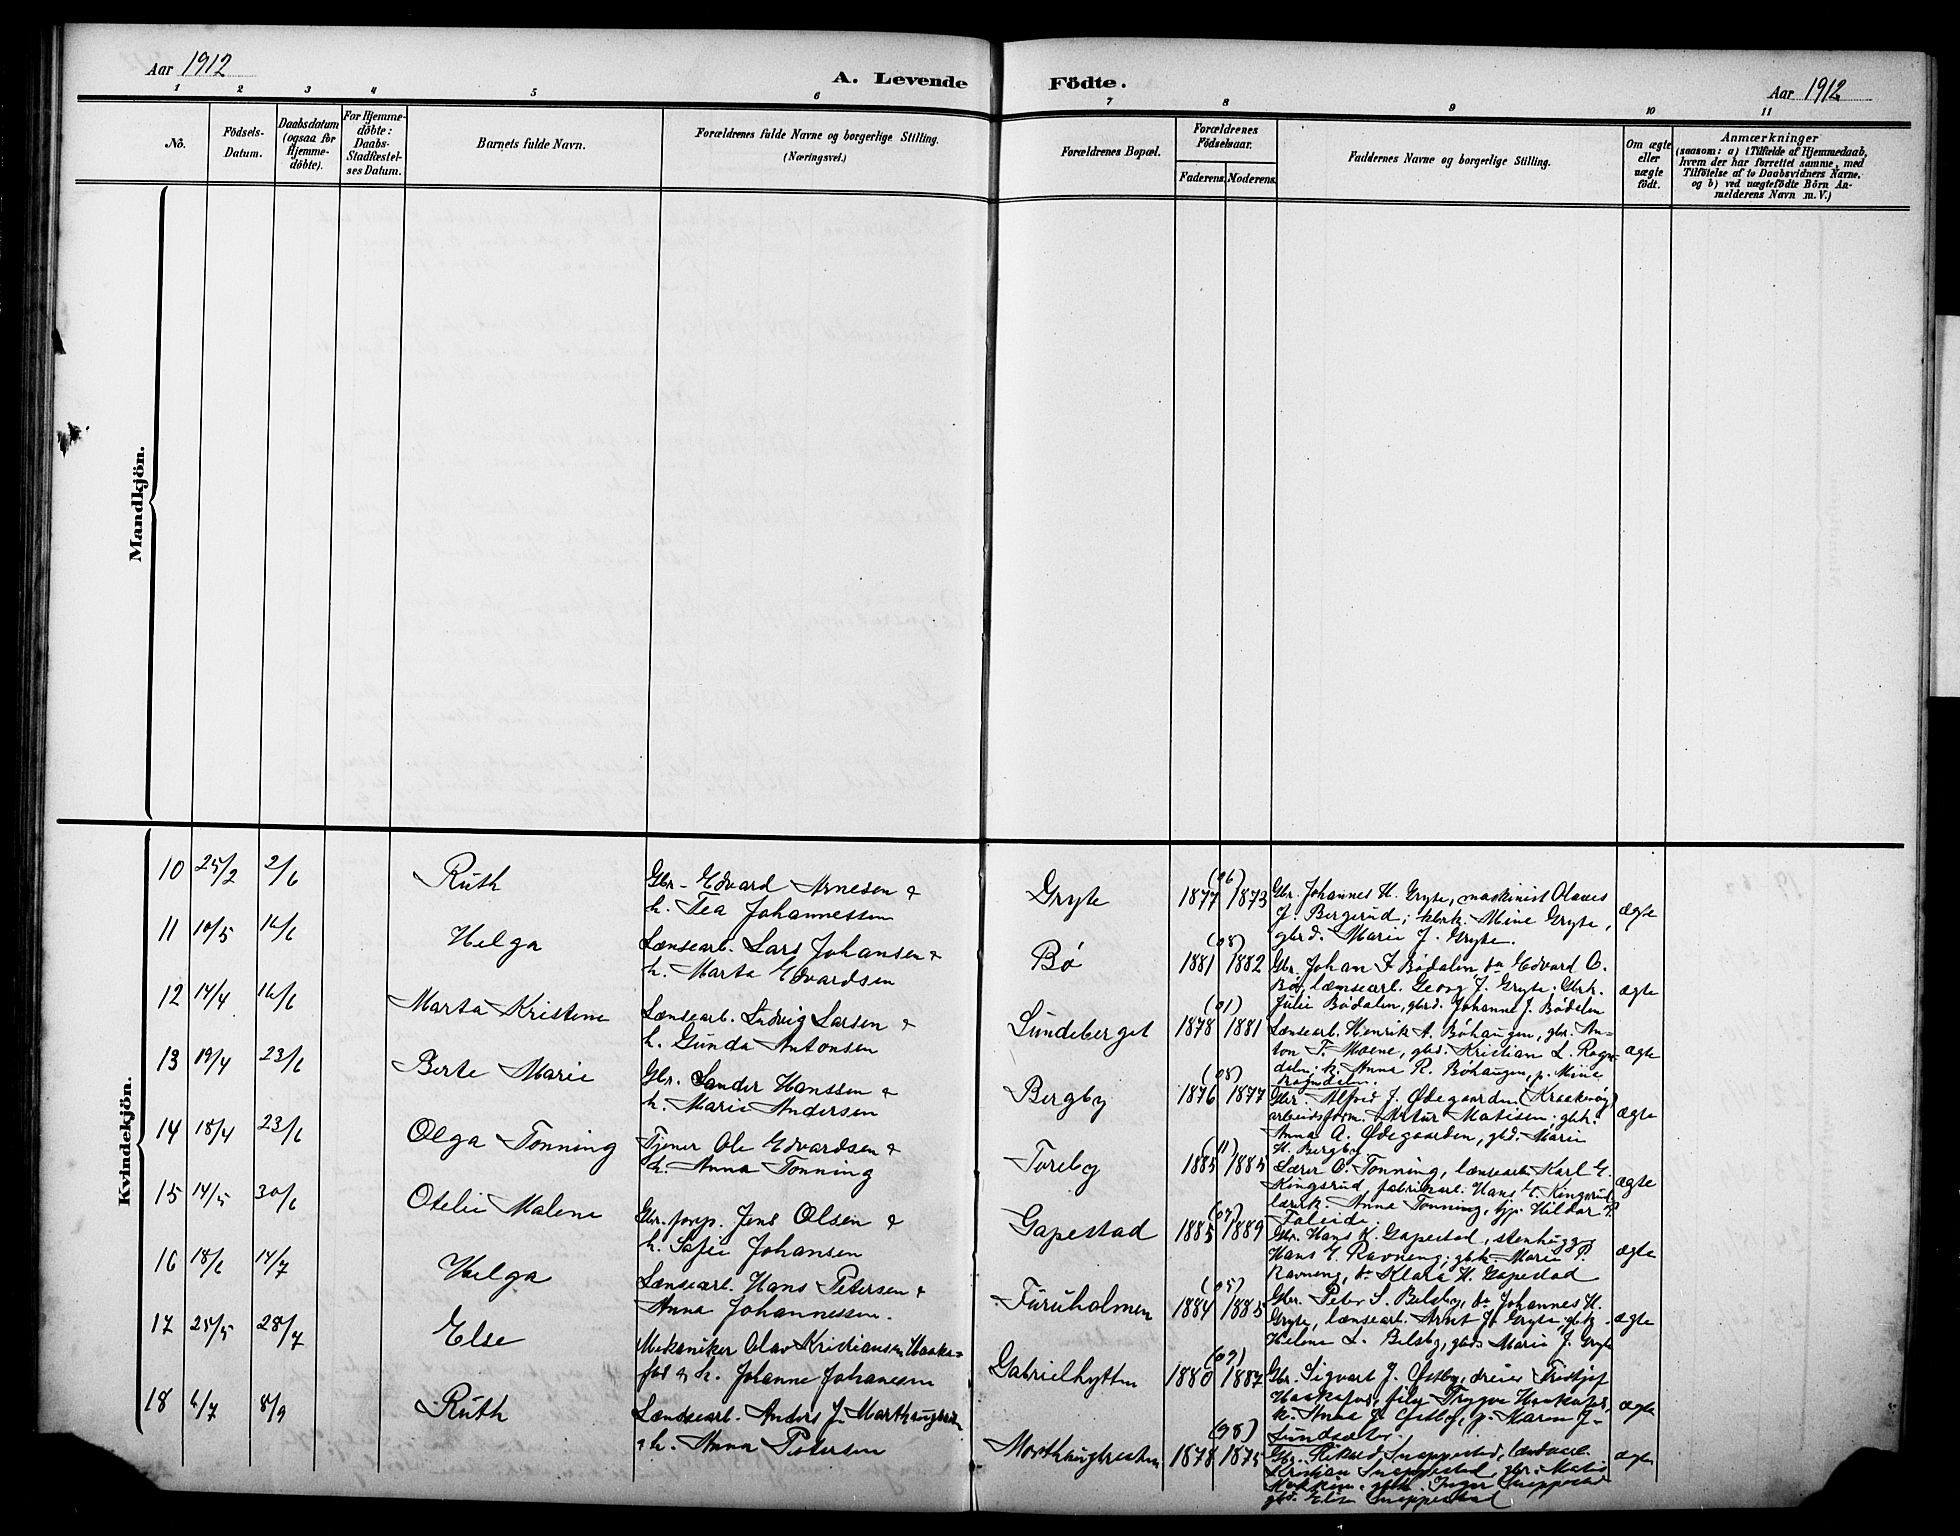 Aar 1912
A. Levende Födte.
Aar 1912
1 2 3 4 5 6 7 8 9 10 11
No.
Födsels-
Datum.
Daabsdatum
(ogsaa for
Hjemme-
döbte).
For Hjemme-
döbte:
Daabs-
Stadfæstel-
ses Datum.
Barnets fulde Navn.
Forældrenes fulde Navne og borgerlige Stilling.
(Næringsvei.)
Forældrenes Bopæl.
Forældrenes
Födselsaar.
Faderens. Moderens.
Faddernes Navne og borgerlige Stilling.
Om ægte
eller
uægte
födt.
Anmærkninger
(saasom: a) i Tilfælde af Hjemmedaab,
hvem der har forrettet samme, med
Tilföielse af to Daabsvidners Navne.
og b) ved uægtefödte Börn An-
melderens Navn m. V.)
Mandkjön.
Kvindekjön.
10 25/2 2/6 Ruth
Gbr. Edvard Arnesen &
h. Tea Johannessen
Gryte (06) 1877 1873
Gbr. Johannes H. Gryte, maskinist Olaves
J. Bergerud; kbrk. Mine Gryte,
gbrd. Marie J. Gryte.
ægte
11 10/5 16/6 Helga
Lænsearb. Lars Johansen &
h. Marta Edvardsen
Bö (08) 1881 1882
Gbr. Johan F Bödalen, do Edvard O.
Bö, lænsearb. Georg J. Gryte; Gbrk.
Julie Bödalen, gbrd. Johanne J. Bödalen
ægte
12 14/4 16/6 Marta Kristine
Lænsearb. Ludvig Larsen &
h. Gunda Antonsen
Lundeberget (01) 1878 1881
Lænsearb. Henrik A. Böhaugen, gbr. An=
ton T. Moene, gbd. Kristian L. Rogn-
dalen; k. Anna R. Böhaugen, p. Mina
Rogndalen.
ægte
13 19/4 23/6 Berte Marie
Gbr. Sander Hanssen &
h. Marie Andersen
Bergby (08) 1876 1877
Gbr. Alfred J. Ødegaarden (Kraakevög)
arbeidsform. Artur Matisen; gbrk.
Anna A. Ødegaarden, gbd. Marie
H. Bergby.
ægte
14 18/4 23/6 Olga Tonning
Tjener Ole Edvardsen &
h. Anna Tonning
Toreby (11) 1885 1885
Lærer O. Tonning, lænsearb. Karl E.
Kingsrud, fabrikarb. Hans E. Kingsrud,
lærerk. Anna Tonning, tjp. Hildar P.
Faleide.
ægte
15 14/5 30/6 Otelie Malene
Gbr. forp. Jens Olsen &
h. Sofie Johansen
Gapestad (07) 1885 1889
Gbr. Hans H. Gapestad, stenhugg.
Hans E. Ravneng; gbk. Marie P.
Ravneng, do Klara H. Gapestad
ægte
16 18/6 14/7 Helga
Lænsearb. Hans Petersen &
Anna Johannessen.
Furuholmen (05) 1884 1885
Gbr. Peter S. Belsby, do Johannes H.
Gryte, lænsearb. Arnt J. Gryte; gbk.
Helene L. Belsby, gbd. Marie J. Gryte
ægte
17 25/5 28/7 Else
Mekaniker Olav Kristiansen Haaka=
fos & h. Johanne Johansen
Gabrielhytten (09) 1880 1887
Gbr. Sigvart J. Østby, dreier Fridtjof
Haakafos, filer Trygve Haakafos,
k. Anna J. Østby, p. Karen J.
Lundsæter.
ægte
18 6/7 8/9 Ruth
Lændsearb. Anders J. Marthaugbraaten
& h. Anna Pedersen
(98) 1878 1875
Gbr. Rikard Snappestad, lændsearb.
Kristian Snappestad, gbr.
gbrk. Inger Snappestad
gbd. Elise Snappestad
ægte